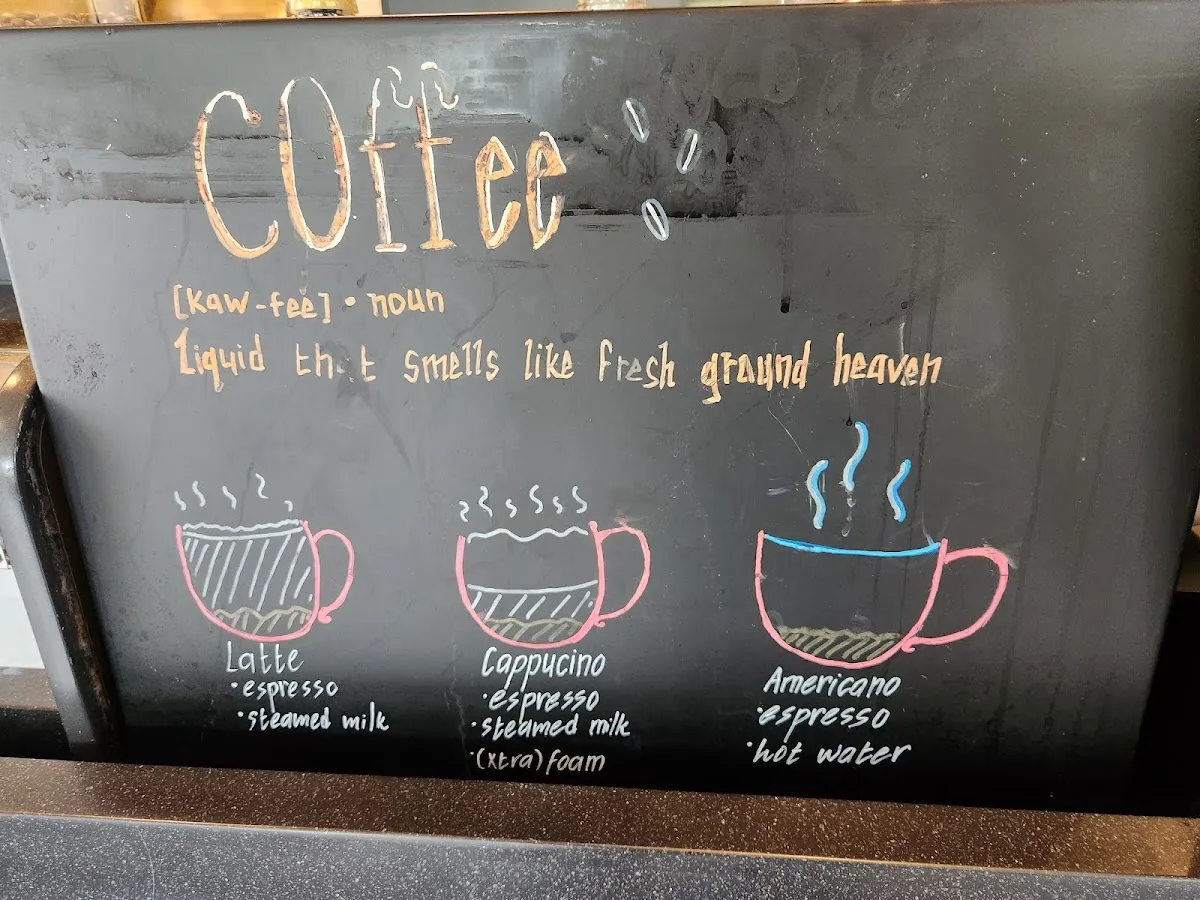 COffee
[Kaw-fee] • noun
Liquid that smells like fresh ground heaven
Latte
• espresso
• steamed milk
Cappucino
• espresso
• steamed milk
• (xtra) foam
Americano
• espresso
• hot water